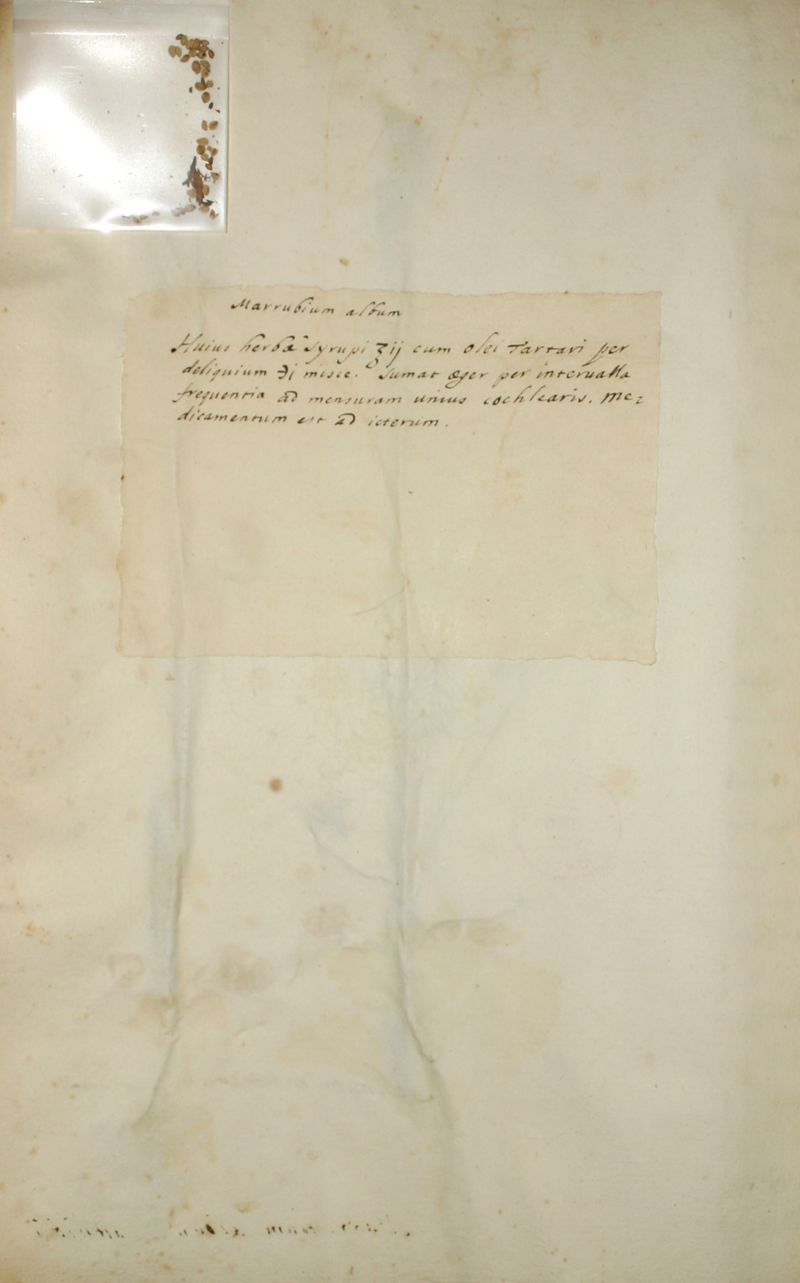 Marrubium album
Huius herbæ Syrupi ʒij cum olei Tartari per
deliquium ℈j misce. Sumat æger per interualla
frequentia ad mensuram unius cochlearis. Me:
dicamentum est ad icterum.